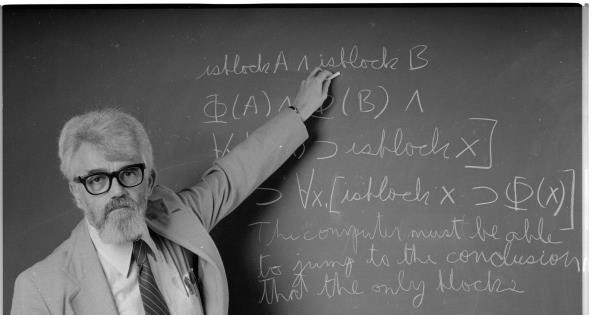 isblock A ∧ isblock B
Φ(A) ∧ Φ(B) ∧
∀x ) ⊃ isblock x]
⊃ ∀x.[isblock x ⊃ Φ(x)]
The computer must be able
to jump to the conclusion
that the only blocks